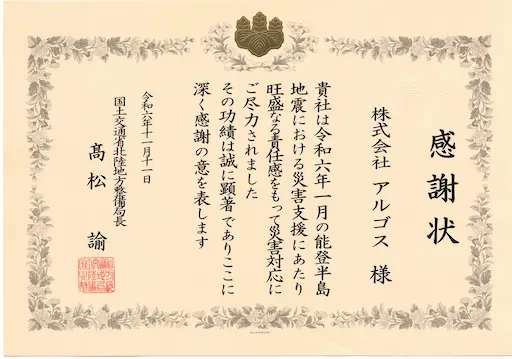 感謝状
株式会社 アルゴス 様
貴社は令和六年一月の能登半島
地震における災害支援にあたり
旺盛なる責任感をもって災害対応に
ご尽力されました
その功績は誠に顕著でありここに
深く感謝の意を表します
令和六年十一月十一日
国土交通省北陸地方整備局長
髙松 諭